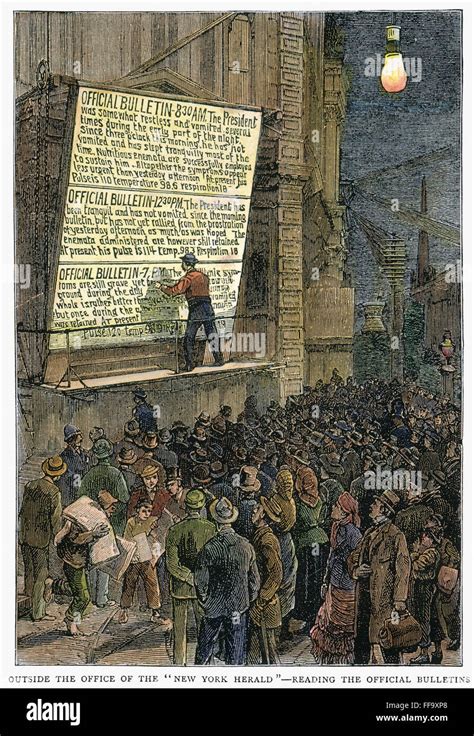 OFFICIAL BULLETIN-8.30 A.M. The President
was somewhat restless and vomited several
times during the early part of the night.
since three o'clock this morning, he has not
vomited and has slept tranquilly most of the
time. Nutritious enemata are successfully employed
to sustain him. Altogether the symptoms appear
less urgent than yesterday afternoon. At present his
Pulse is 110 temperature 98.6 respiration 18
OFFICIAL BULLETIN-12.30 P.M. The President has
been tranquil and has not vomited, since the morning
bulletin, but has not yet rallied, from the prostration
of yesterday afternoon, as much as was hoped. The
enemata administered are however still retained
present, his pulse is 114 Temp. 98.3 Respiration 18
OFFICIAL BULLETIN-7, P.M. The
toms are still grave yet
ground during the day
whole is rather better
but once during the
was retained at present
Pulse 120 Temp 98.9
OUTSIDE THE OFFICE OF THE "NEW YORK HERALD"—READING THE OFFICIAL BULLETINS
alamy
a
alamy stock photo
FF9XP8
www.alamy.com